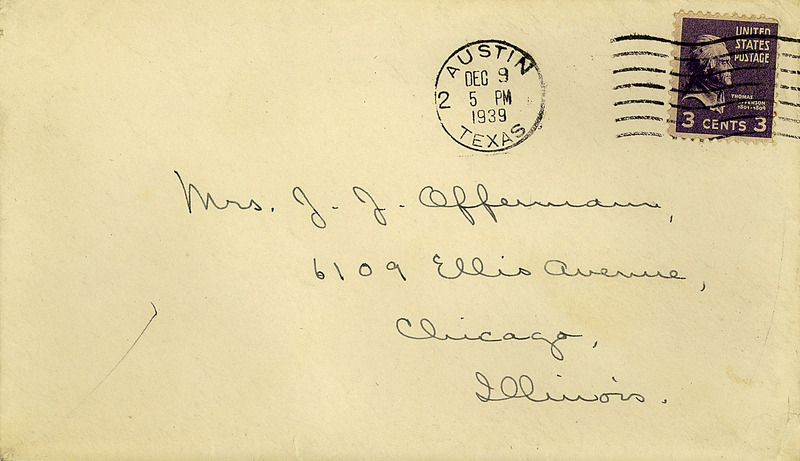 AUSTIN
DEC 9
5 PM
1939
2
TEXAS
UNITED
STATES
POSTAGE
THOMAS
JEFFERSON
1801-1809
3 CENTS 3
Mrs. J. J. Offermann,
6109 Ellis Avenue,
Chicago,
Illinois.